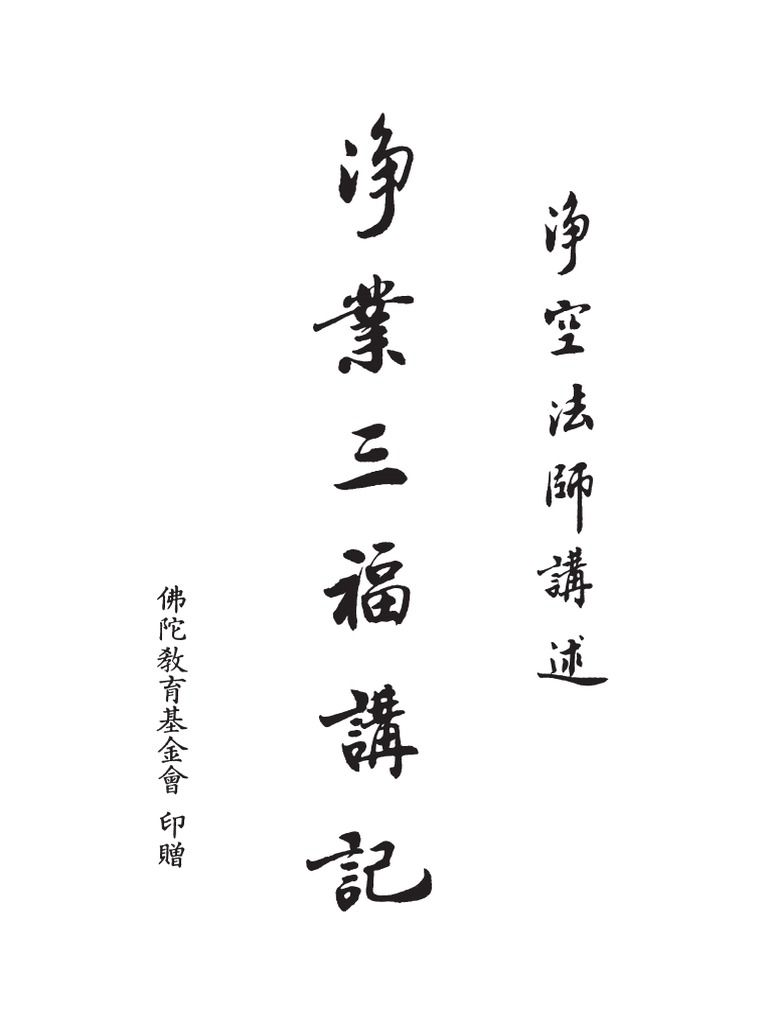 淨空法師講述
淨業三福講記
佛陀教育基金會 印贈